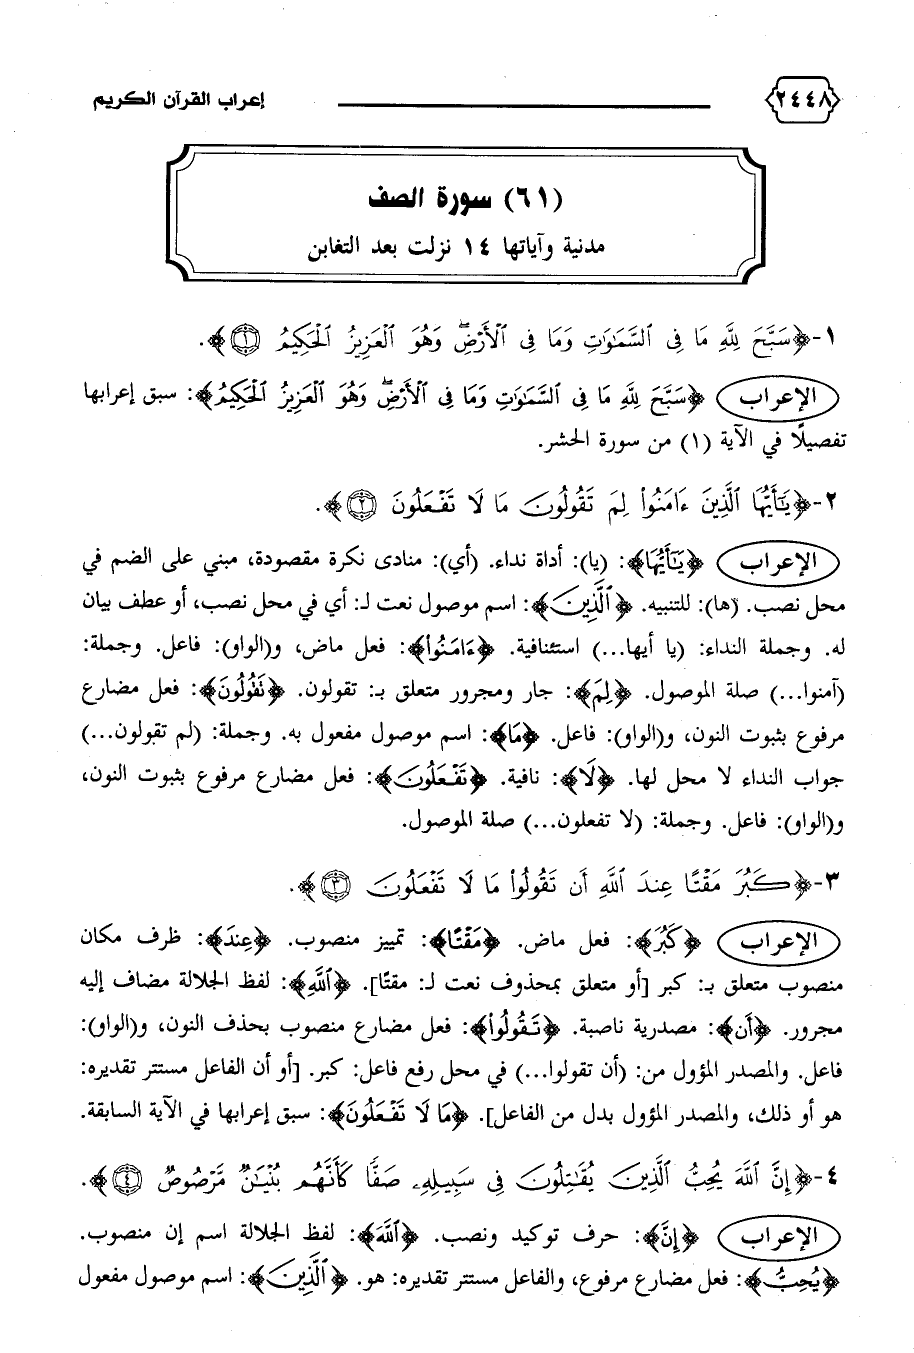 ٢٤٤٨ إعراب القرآن الكريم
(٦١) سورة الصف
مدنية وآياتها ١٤ نزلت بعد التغابن
١-﴿سَبَّحَ لِلَّهِ مَا فِى ٱلسَّمَٰوَٰتِ وَمَا فِى ٱلْأَرْضِۖ وَهُوَ ٱلْعَزِيزُ ٱلْحَكِيمُ ۝١﴾.
الإعراب ﴿سَبَّحَ لِلَّهِ مَا فِى ٱلسَّمَٰوَٰتِ وَمَا فِى ٱلْأَرْضِۖ وَهُوَ ٱلْعَزِيزُ ٱلْحَكِيمُ﴾: سبق إعرابها
تفصيلًا في الآية (١) من سورة الحشر.
٢-﴿يَٰٓأَيُّهَا ٱلَّذِينَ ءَامَنُوا۟ لِمَ تَقُولُونَ مَا لَا تَفْعَلُونَ ۝٢﴾.
الإعراب ﴿يَٰٓأَيُّهَا﴾: (يا): أداة نداء. (أي): منادى نكرة مقصودة، مبني على الضم في
محل نصب. (ها): للتنبيه. ﴿ٱلَّذِينَ﴾: اسم موصول نعت لـ: أي في محل نصب، أو عطف بيان
له. وجملة النداء: (يا أيها...) استئنافية. ﴿ءَامَنُوا۟﴾: فعل ماض، و(الواو): فاعل. وجملة:
(آمنوا...) صلة الموصول. ﴿لِمَ﴾: جار ومجرور متعلق بـ: تقولون. ﴿تَقُولُونَ﴾: فعل مضارع
مرفوع بثبوت النون، و(الواو): فاعل. ﴿مَا﴾: اسم موصول مفعول به. وجملة: (لم تقولون...)
جواب النداء لا محل لها. ﴿لَا﴾: نافية. ﴿تَفْعَلُونَ﴾: فعل مضارع مرفوع بثبوت النون،
و(الواو): فاعل. وجملة: (لا تفعلون...) صلة الموصول.
٣-﴿كَبُرَ مَقْتًا عِندَ ٱللَّهِ أَن تَقُولُوا۟ مَا لَا تَفْعَلُونَ ۝٣﴾.
الإعراب ﴿كَبُرَ﴾: فعل ماض. ﴿مَقْتًا﴾: تمييز منصوب. ﴿عِندَ﴾: ظرف مكان
منصوب متعلق بـ: كبر [أو متعلق بمحذوف نعت لـ: مقتًا]. ﴿ٱللَّهِ﴾: لفظ الجلالة مضاف إليه
مجرور. ﴿أَن﴾: مصدرية ناصبة. ﴿تَقُولُوا۟﴾: فعل مضارع منصوب بحذف النون، و(الواو):
فاعل. والمصدر المؤول من: (أن تقولوا...) في محل رفع فاعل: كبر. [أو أن الفاعل مستتر تقديره:
هو أو ذلك، والمصدر المؤول بدل من الفاعل]. ﴿مَا لَا تَفْعَلُونَ﴾: سبق إعرابها في الآية السابقة.
٤-﴿إِنَّ ٱللَّهَ يُحِبُّ ٱلَّذِينَ يُقَٰتِلُونَ فِى سَبِيلِهِۦ صَفًّا كَأَنَّهُم بُنْيَٰنٌ مَّرْصُوصٌ ۝٤﴾.
الإعراب ﴿إِنَّ﴾: حرف توكيد ونصب. ﴿ٱللَّهَ﴾: لفظ الجلالة اسم إن منصوب.
﴿يُحِبُّ﴾: فعل مضارع مرفوع، والفاعل مستتر تقديره: هو. ﴿ٱلَّذِينَ﴾: اسم موصول مفعول